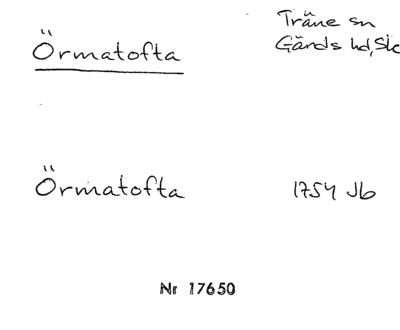 Örmatofta
Träne sn
Gärds hd, Sk
Örmatofta
1754 Jb
Nr 17650